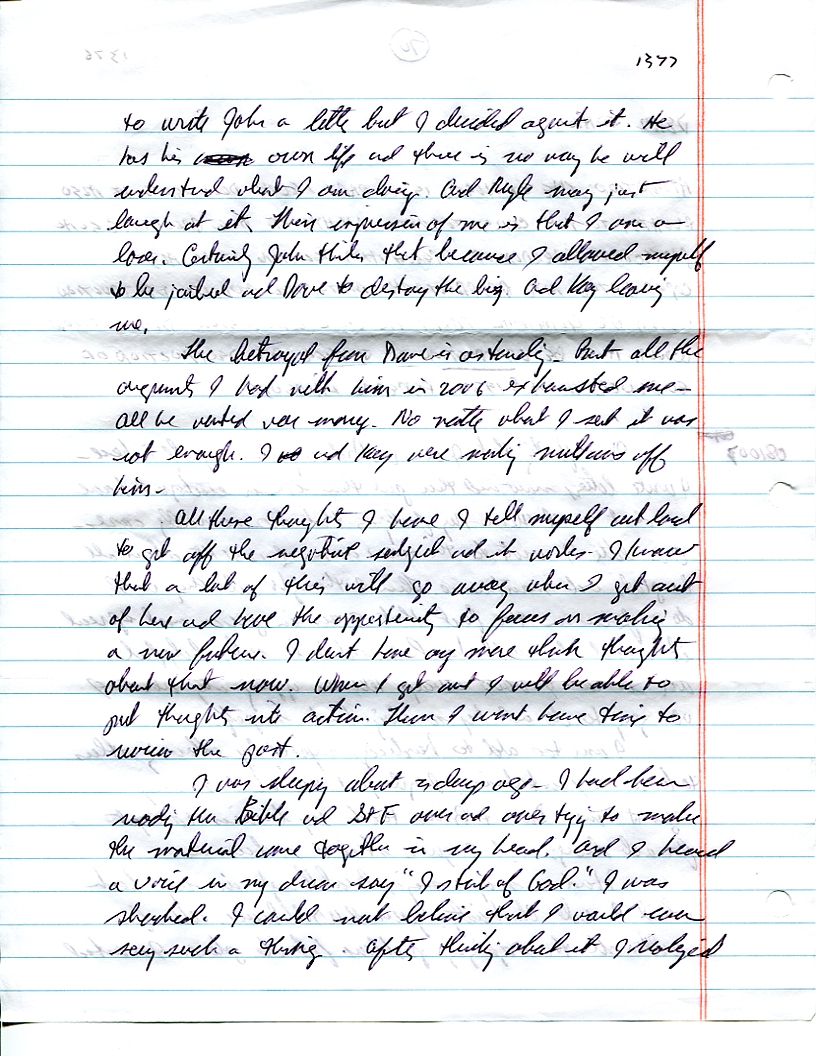 1377
to write John a letter but I decided against it. He
has his own life and there is no way he will
understand what I am doing. And may just
laugh at it. Their impression of me is that I am a
loser. Certainly John thinks that because I allowed myself
to be jailed and Dave to destroy the big. And Kay leaving
me.
The betrayal from Dave is astounding. But all the
arguments I had with him in 2006 exhausted me –
all he wanted was money. No matter what I sent it was
not enough. I and Kay were making millions off
him –
All these thoughts I have I tell myself out loud
to get off the negative and it works. I know
that a lot of this will go away when I get out
of here and have the opportunity to focus on making
a new future. I don't have any more thoughts
about that now. When I get out I will be able to
put thoughts into action. Then I wont have time to
review the past.
I was sleeping about days ago – I had been
reading the Bible and S&F over and over trying to make
the material come together in my head. And I heard
a voice in my dream say "I of God." I was
shocked. I could not believe that I would ever
say such a thing. After thinking about it I realized